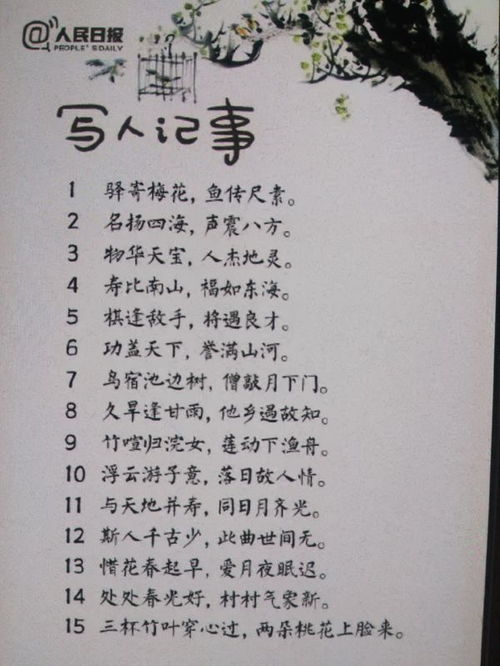 @人民日报
PEOPLE'S DAILY
写人记事
1 驿寄梅花，鱼传尺素。
2 名扬四海，声震八方。
3 物华天宝，人杰地灵。
4 寿比南山，福如东海。
5 棋逢敌手，将遇良才。
6 功盖天下，誉满山河。
7 鸟宿池边树，僧敲月下门。
8 久旱逢甘雨，他乡遇故知。
9 竹喧归浣女，莲动下渔舟。
10 浮云游子意，落日故人情。
11 与天地并寿，同日月齐光。
12 斯人千古少，此曲世间无。
13 惜花春起早，爱月夜眠迟。
14 处处春光好，村村气象新。
15 三杯竹叶穿心过，两朵桃花上脸来。